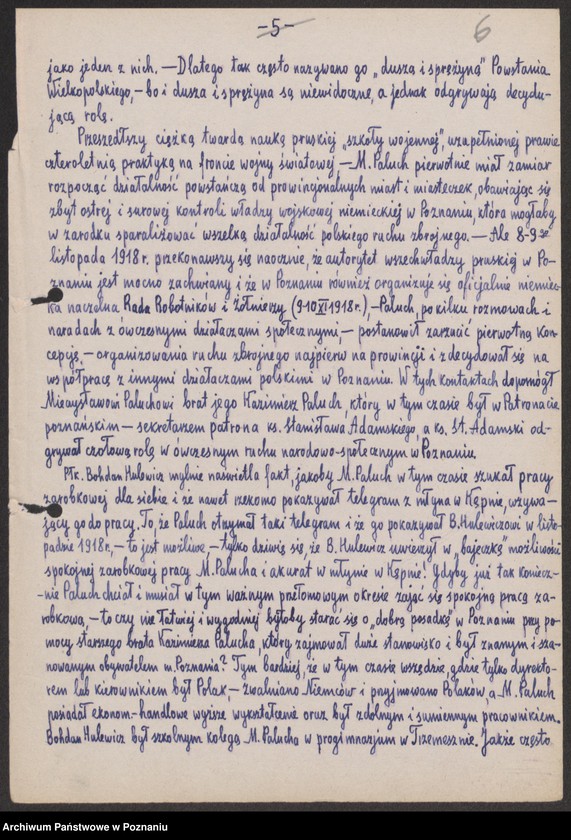 -5-
6
jako jeden z nich. — Dlatego tak często nazywano go „duszą i sprężyną" Powstania
Wielkopolskiego, — bo i dusza i sprężyna są niewidoczne, a jednak odgrywają decydu-
jącą rolę.
Przeszedłszy ciężką twardą nauką pruskiej „szkoły wojennej", uzupełnionej prawie
czteroletnią praktyką na froncie wojny światowej — M. Paluch pierwotnie miał zamiar
rozpocząć działalność powstańczą od prowincjonalnych miast i miasteczek, obawiając się
zbyt ostrej i surowej kontroli władzy wojskowej niemieckiej w Poznaniu, która mogłaby
w zarodku sparaliżować wszelką działalność polskiego ruchu zbrojnego. — Ale 8-9
listopada 1918 r. przekonawszy się naocznie, że autorytet wszechwładzy pruskiej w Po-
znaniu jest mocno zachwiany i że w Poznaniu również organizuje się oficjalnie niemiec-
ka naczelna Rada Robotników i Żołnierzy (9-10 XI 1918 r.), — Paluch, po kilku rozmowach i
naradach z ówczesnymi działaczami społecznymi, — postanowił zarzucić pierwotną kon-
cepcję, — organizowania ruchu zbrojnego najpierw na prowincji i zdecydował się na
współpracę z innymi działaczami polskimi w Poznaniu. W tych kontaktach dopomógł
Mieczysławowi Paluchowi brat jego Kazimierz Paluch, który w tym czasie był w Patronacie
poznańskim — sekretarzem patrona ks. Stanisława Adamskiego, a ks. St. Adamski od-
grywał czołową rolę w ówczesnym ruchu narodowo-społecznym w Poznaniu.
Płk. Bohdan Hulewicz mylnie naświetla fakt, jakoby M. Paluch w tym czasie szukał pracy
zarobkowej dla siebie i że nawet rzekomo pokazywał telegram z młyna w Kępnie, wzywa-
jący go do pracy. To, że Paluch otrzymał taki telegram i że go pokazywał B. Hulewiczowi w listo-
padzie 1918 r., — to jest możliwe, — tylko dziwię się, że B. Hulewicz uwierzył w „bajeczkę" możliwości
spokojnej zarobkowej pracy M. Palucha i akurat w młynie w Kępnie! Gdyby już tak koniecz-
-nie Paluch chciał i musiał w tym ważnym przełomowym okresie zająć się spokojną pracą za-
robkową, — to czy nie łatwiej i wygodniej byłoby starać się o „dobrą posadkę" w Poznaniu przy po-
mocy starszego brata Kazimierza Palucha, który zajmował duże stanowisko i był znanym i sza-
nowanym obywatelem w Poznaniu? Tym bardziej, że w tym czasie wszędzie, gdzie tylko dyrekto-
rem lub kierownikiem był Polak, — zwalniano Niemców i przyjmowano Polaków, a M. Paluch
posiadał ekonom.-handlowe wyższe wykształcenie oraz był zdolnym i sumiennym pracownikiem.
Bohdan Hulewicz był szkolnym kolegą M. Palucha w progimnazjum w Trzemesznie. Jakże często
Archiwum Państwowe w Poznaniu